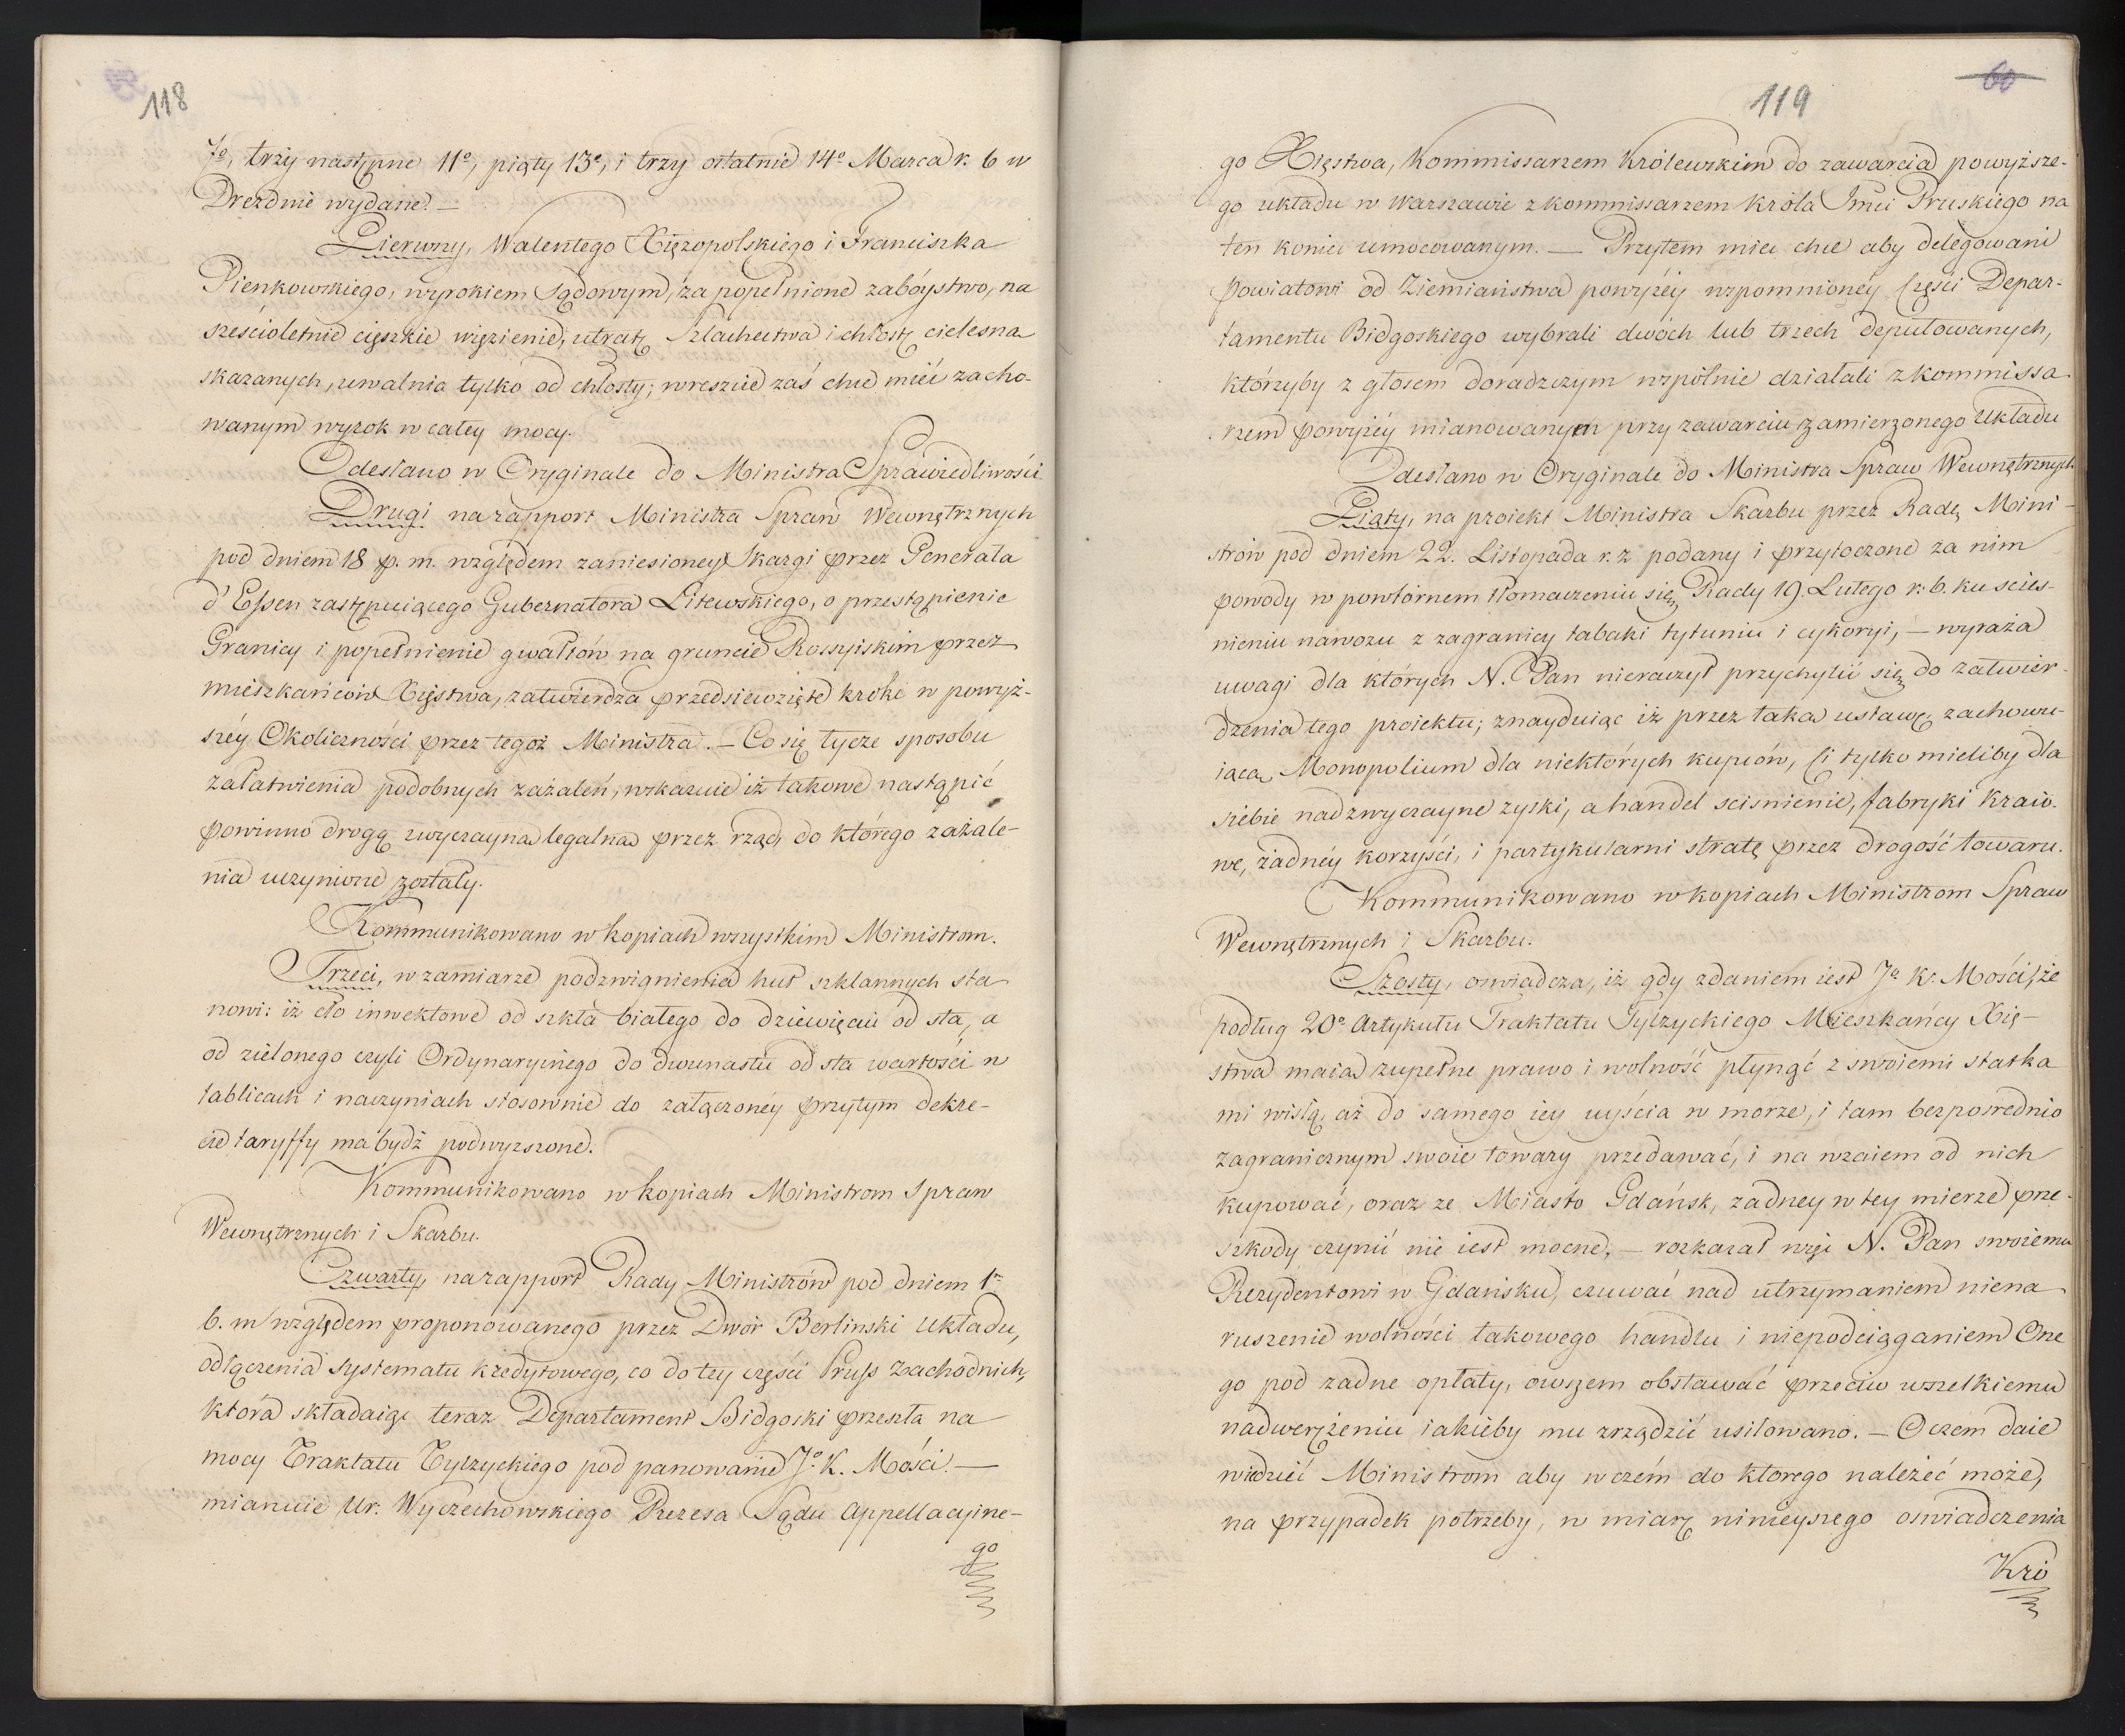 118
7º, trzy następne 11º, piąty 13º, i trzy ostatnie 14º Marca r. b w
Dreznie wydane. —
Pierwszy, Walentego Xiężopolskiego i Franciszka
Pienkowskiego, wyrokiem Sądowym, za popełnione zabóystwo, na
sześcioletnie cięszkie więzienie, utratę Szlachectwa i chłostę cielesną
skazanych, uwalnia tylko od chłosty; wreszcie zaś chce mieć zacho-
wanym wyrok w całey mocy.
Odesłano w Oryginale do Ministra Sprawiedliwości
Drugi na rapport Ministra Spraw Wewnętrznych
pod dniem 18 p. m. względem zaniesioney skargi przez Generała
d'Essen zastępuiącego Gubernatora Litewskiego, o przestąpienie
Granicy i popełnienie gwałtów na gruncie Rossyiskim przez
mieszkańców Xięstwa, zatwierdza przedsiewzięte kroki w powyż-
széy Okoliczności przez tegoż Ministra. — Co się tycze sposobu
załatwienia podobnych zażaleń, wskazuie iż takowe nastąpić
powinno drogą zwyczayną legalną przez rząd, do którego zażale-
nia uczynione zostały.
Kommunikowano w kopiach wszystkim Ministrom.
Trzeci, w zamiarze podzwignienia hut szklannych sta
nowi: iż cło inwektowe od szkła białego do dziewięciu od sta, a
od zielonego czyli Ordynaryinego do dwunastu od sta wartości w
tablicach i naczyniach stosownie do załączonéy przytym dekre-
cie taryffy ma bydź podwyższone.
Kommunikowano w kopiach Ministrom Spraw
Wewnętrznych i Skarbu.
Czwarty, na rapport Rady Ministrów pod dniem 1º
b. m względem proponowanego przez Dwór Berlinski Układu,
odłączenia systematu kredytowego, co do tey części Pruss Zachodnich,
która składaiąc teraz Departament Bidgoski przeszła na
mocy Traktatu Tylzyckiego pod panowanie Jº K. Mości. —
mianuie Ur: Wyczechowskiego Prezesa Sądu Appellacyine-
go
60
119
go Xięstwa, Kommissarzem Królewskim do zawarcia powyższe-
go układu w Warszawie z kommissarzem Króla Jmci Pruskiego na
ten koniec umocowanym. — Przytem mieć chce aby delegowani
powiatowi od Ziemiaństwa powyżéy wspomnionéy Części Depar-
tamentu Bidgoskiego wybrali dwóch lub trzech deputowanych,
którzyby z głosem doradzczym wspólnie działali z kommissa
rzem powyżéy mianowanym przy zawarciu zamierzonego Układu
Odesłano w Oryginale do Ministra Spraw Wewnętrznych
Piąty, na proiekt Ministra Skarbu przez Radę Mini-
strów pod dniem 22. Listopada r. z podany i przytoczone za nim
powody w powtórnem tłomaczeniu się Rady 19. Lutego r. b. ku scieś-
nieniu nawozu z zagranicy tabaki tytuniu i cykoryi, — wyraża
uwagi dla których N. Pan nieraczył przychylić się do zatwier-
dzenia tego proiektu; znayduiąc iż przez taką ustawę zachowu-
iącą Monopolium dla niektórych kupców, Ci tylko mieliby dla
siebie nadzwyczayne zyski, a handel scisnienie, fabryki kraio-
we, żadnéy korzyści, i partykularni stratę przez drogość towaru.
Kommunikowano w kopiach Ministrom Spraw
Wewnętrznych i Skarbu.
Szosty, oswiadcza, iż gdy zdaniem iest Jº K. Mości, że
podług 20º Artykułu Traktatu Tylzyckiego Mieszkańcy Xię-
stwa maią zupełne prawo i wolność płynąć z swoiemi statka
mi wisłą aż do samego iey uyścia w morze, i tam bezpośrednio
zagranicznym swoie towary przedawać, i na wzaiem od nich
kupować, oraz ze Miasto Gdańsk, zadney w tey mierze prze-
szkody czynić nie iest mocne, — rozkazał więc N. Pan swoiemu
Rezydentowi w Gdańsku, czuwać nad utrzymaniem niena
ruszenie wolności takowego handlu i niepodciąganiem One
go pod zadne opłaty, owszem obstawać przeciw wszelkiemu
nadwerężeniu iakieby mu zrządzić usiłowano. — O czem daie
wiedzieć Ministrom aby w czém do ktorego należeć może,
na przypadek potrzeby, w miarę ninieyszego oswiadczenia
Kró